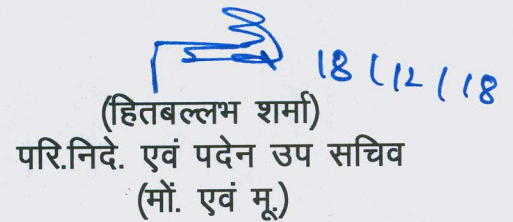 18/12/18
(हितबल्लभ शर्मा)
परि.निदे. एवं पदेन उप सचिव
(मों. एवं मू.)